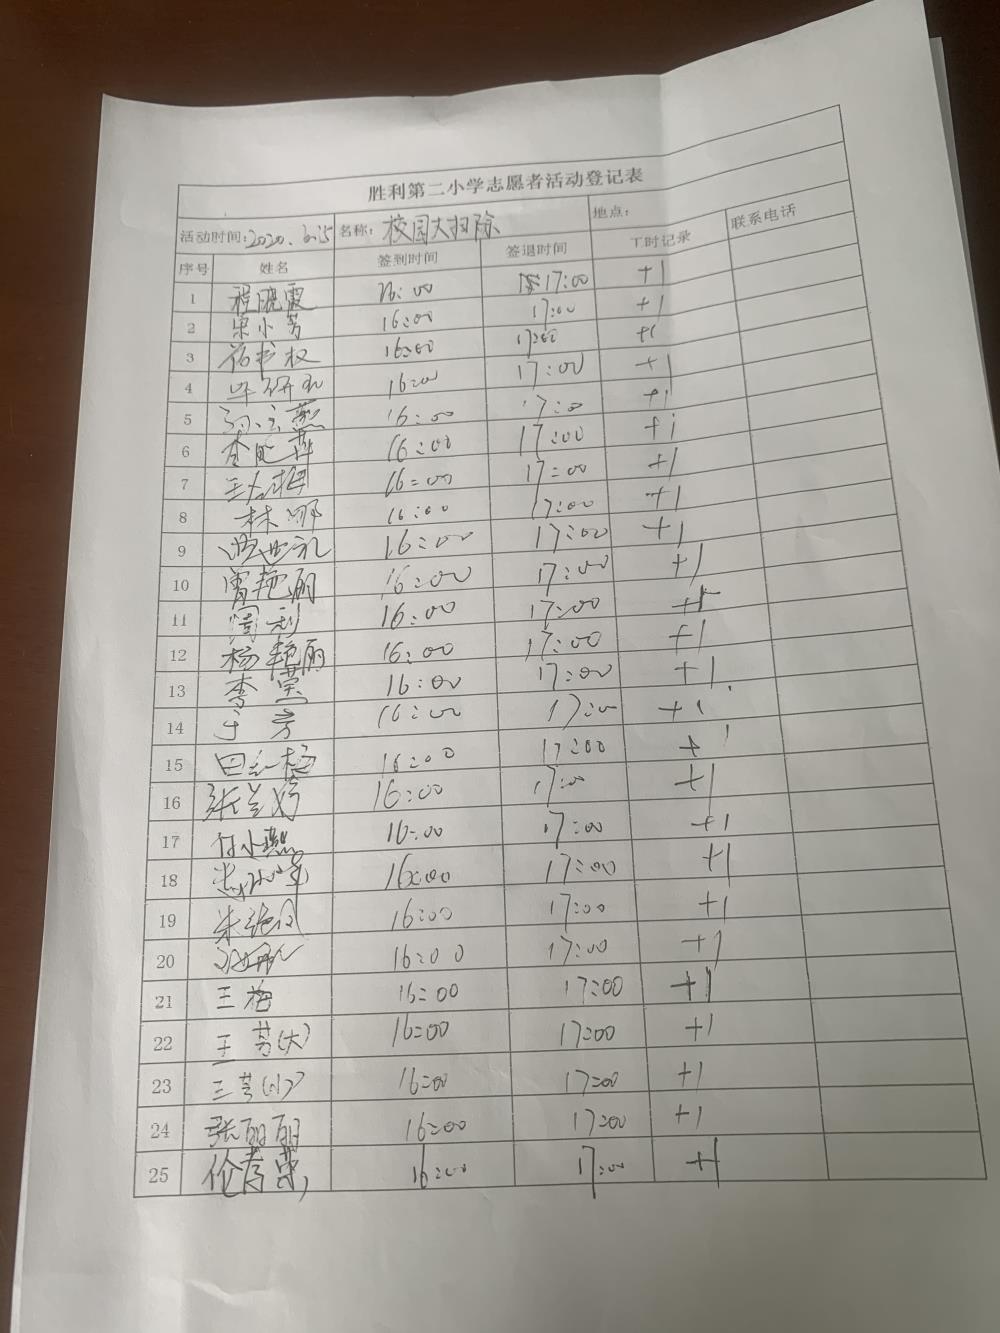 胜利第二小学志愿者活动登记表
活动时间:2020.6.15 名称: 校园大扫除 地点:
序号 姓名 签到时间 签退时间 工时记录 联系电话
1 程晓霞 16:00 17:00 +1
2 宋小芳 16:00 17:00 +1
3 16:00 17:00 +1
4 16:00 17:00 +1
5 16:00 17:00 +1
6 16:00 17:00 +1
7 16:00 17:00 +1
8 林娜 16:00 17:00 +1
9 16:00 17:00 +1
10 曾艳丽 16:00 17:00 +1
11 周利 16:00 17:00 +1
12 杨艳丽 16:00 17:00 +1
13 李莹 16:00 17:00 +1
14 于芳 16:00 17:00 +1
15 田红梅 16:00 17:00 +1
16 张兰婷 16:00 17:00 +1
17 付小燕 16:00 17:00 +1
18 16:00 17:00 +1
19 朱艳 16:00 17:00 +1
20 16:00 17:00 +1
21 王梅 16:00 17:00 +1
22 王芳(大) 16:00 17:00 +1
23 王芳(小) 16:00 17:00 +1
24 张丽丽 16:00 17:00 +1
25 16:00 17:00 +1